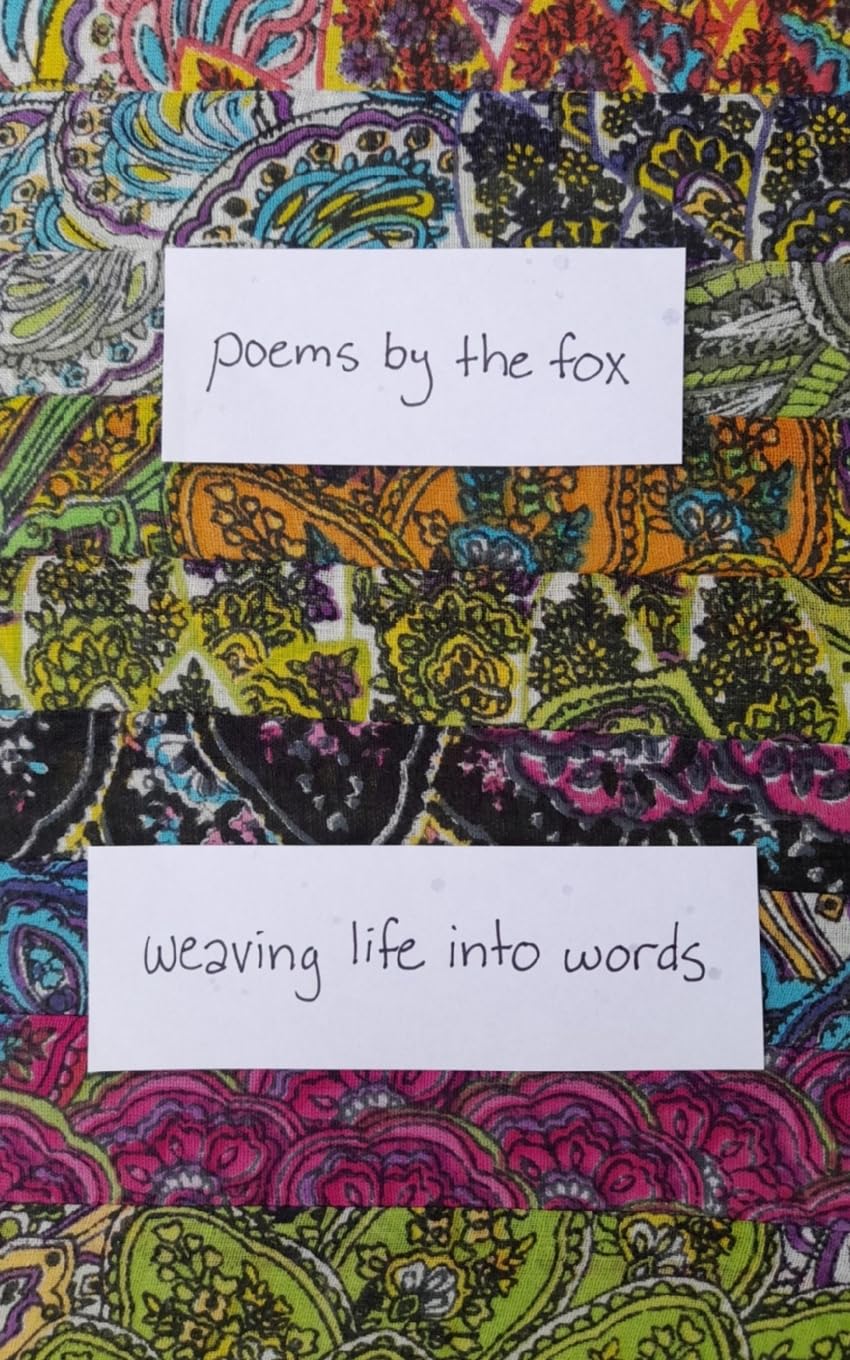 poems by the fox
weaving life into words